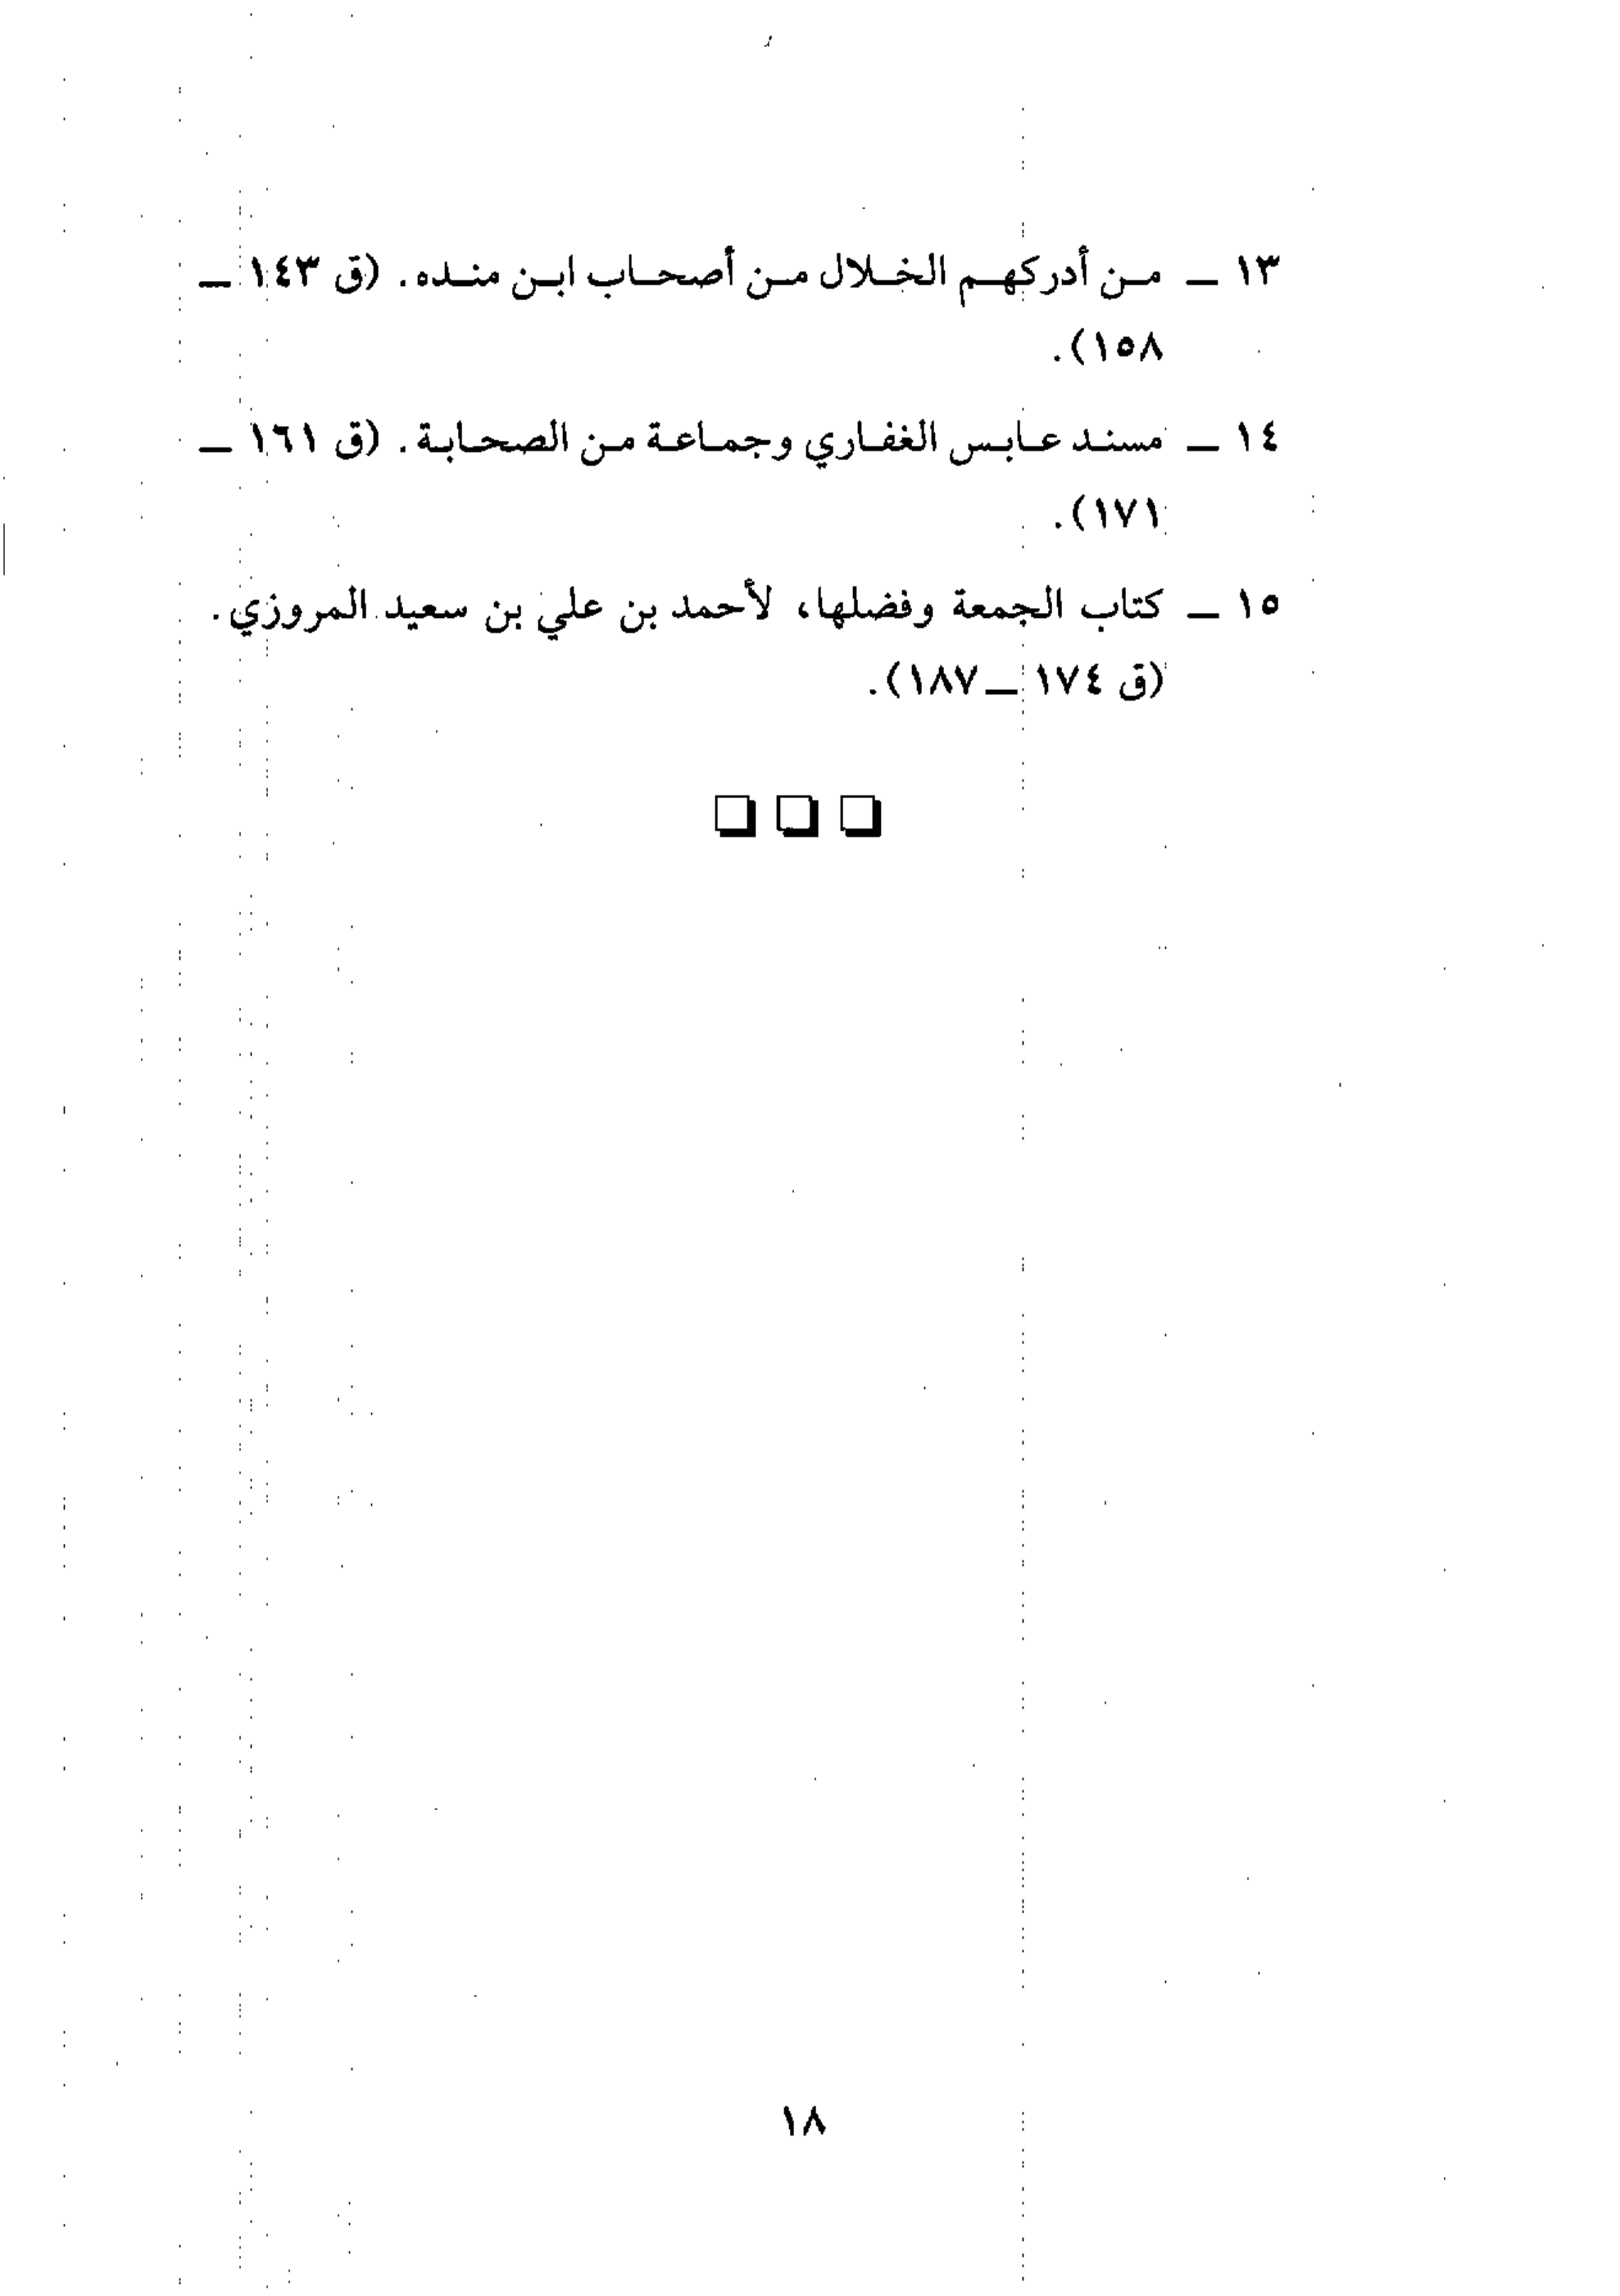 ١٣ ــ من أدركهم الخلال من أصحاب ابن منده. (ق ١٤٣ ــ
١٥٨).
١٤ ــ مسند عابس الغفاري وجماعة من الصحابة. (ق ١٦١ ــ
١٧١).
١٥ ــ كتاب الجمعة وفضلها، لأحمد بن علي بن سعيد المروزي.
(ق ١٧٤ ــ ١٨٧).
١٨